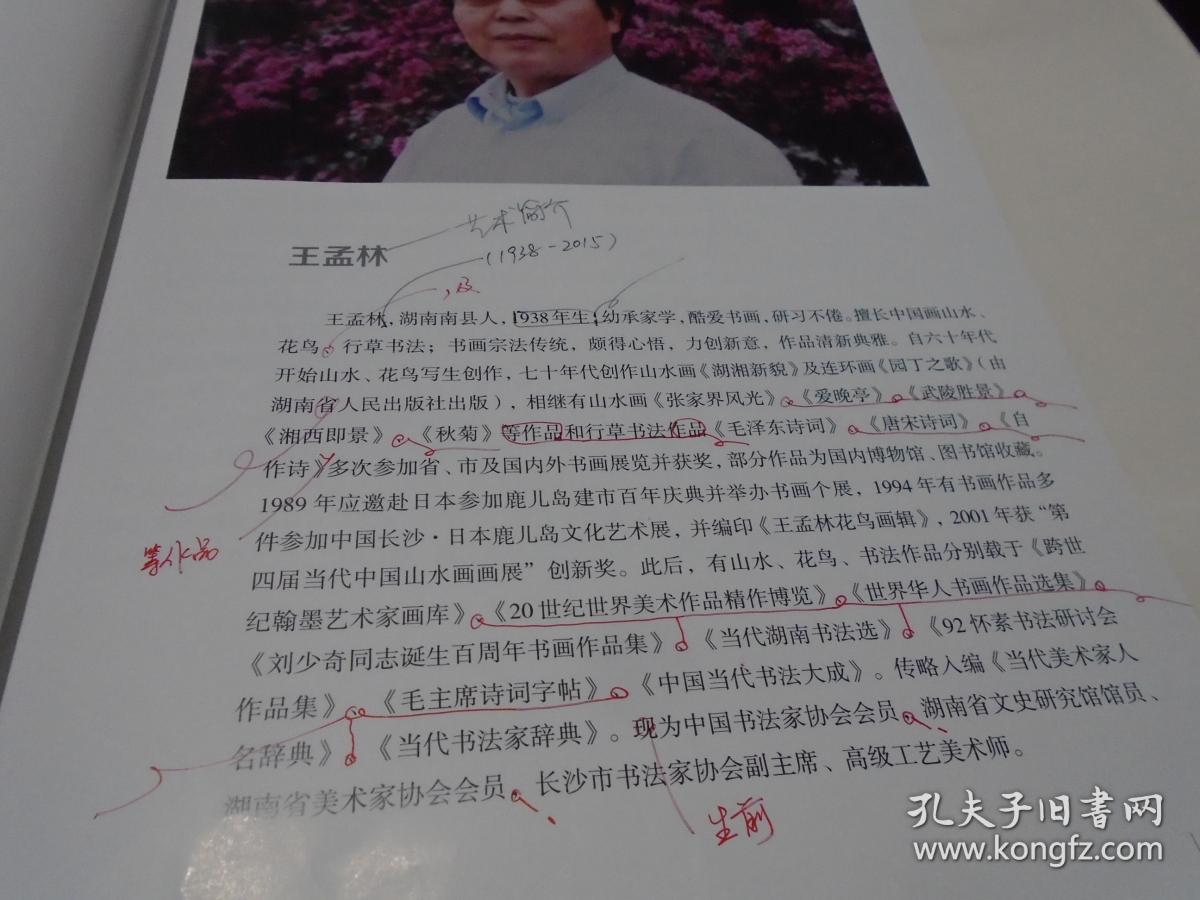 艺术简介
王孟林
(1938-2015)
,及
王孟林,湖南南县人,1938年生,幼承家学,酷爱书画,研习不倦。擅长中国画山水、
花鸟。行草书法;书画宗法传统,颇得心悟,力创新意,作品清新典雅。自六十年代
开始山水、花鸟写生创作,七十年代创作山水画《湖湘新貌》及连环画《园丁之歌》(由
湖南省人民出版社出版),相继有山水画《张家界风光》、《爱晚亭》、《武陵胜景》、
《湘西即景》、《秋菊》等作品和行草书法作品《毛泽东诗词》、《唐宋诗词》、《自
作诗》多次参加省、市及国内外书画展览并获奖,部分作品为国内博物馆、图书馆收藏。
1989年应邀赴日本参加鹿儿岛建市百年庆典并举办书画个展,1994年有书画作品多
件参加中国长沙·日本鹿儿岛文化艺术展,并编印《王孟林花鸟画辑》,2001年获“第
等作品
四届当代中国山水画画展”创新奖。此后,有山水、花鸟、书法作品分别载于《跨世
纪翰墨艺术家画库》、《20世纪世界美术作品精作博览》、《世界华人书画作品选集》、
《刘少奇同志诞生百周年书画作品集》、《当代湖南书法选》、《92怀素书法研讨会
作品集》、《毛主席诗词字帖》、《中国当代书法大成》。传略入编《当代美术家人
名辞典》、《当代书法家辞典》。现为中国书法家协会会员、湖南省文史研究馆馆员、
湖南省美术家协会会员、长沙市书法家协会副主席、高级工艺美术师。
生前
孔夫子旧书网
www.kongfz.com